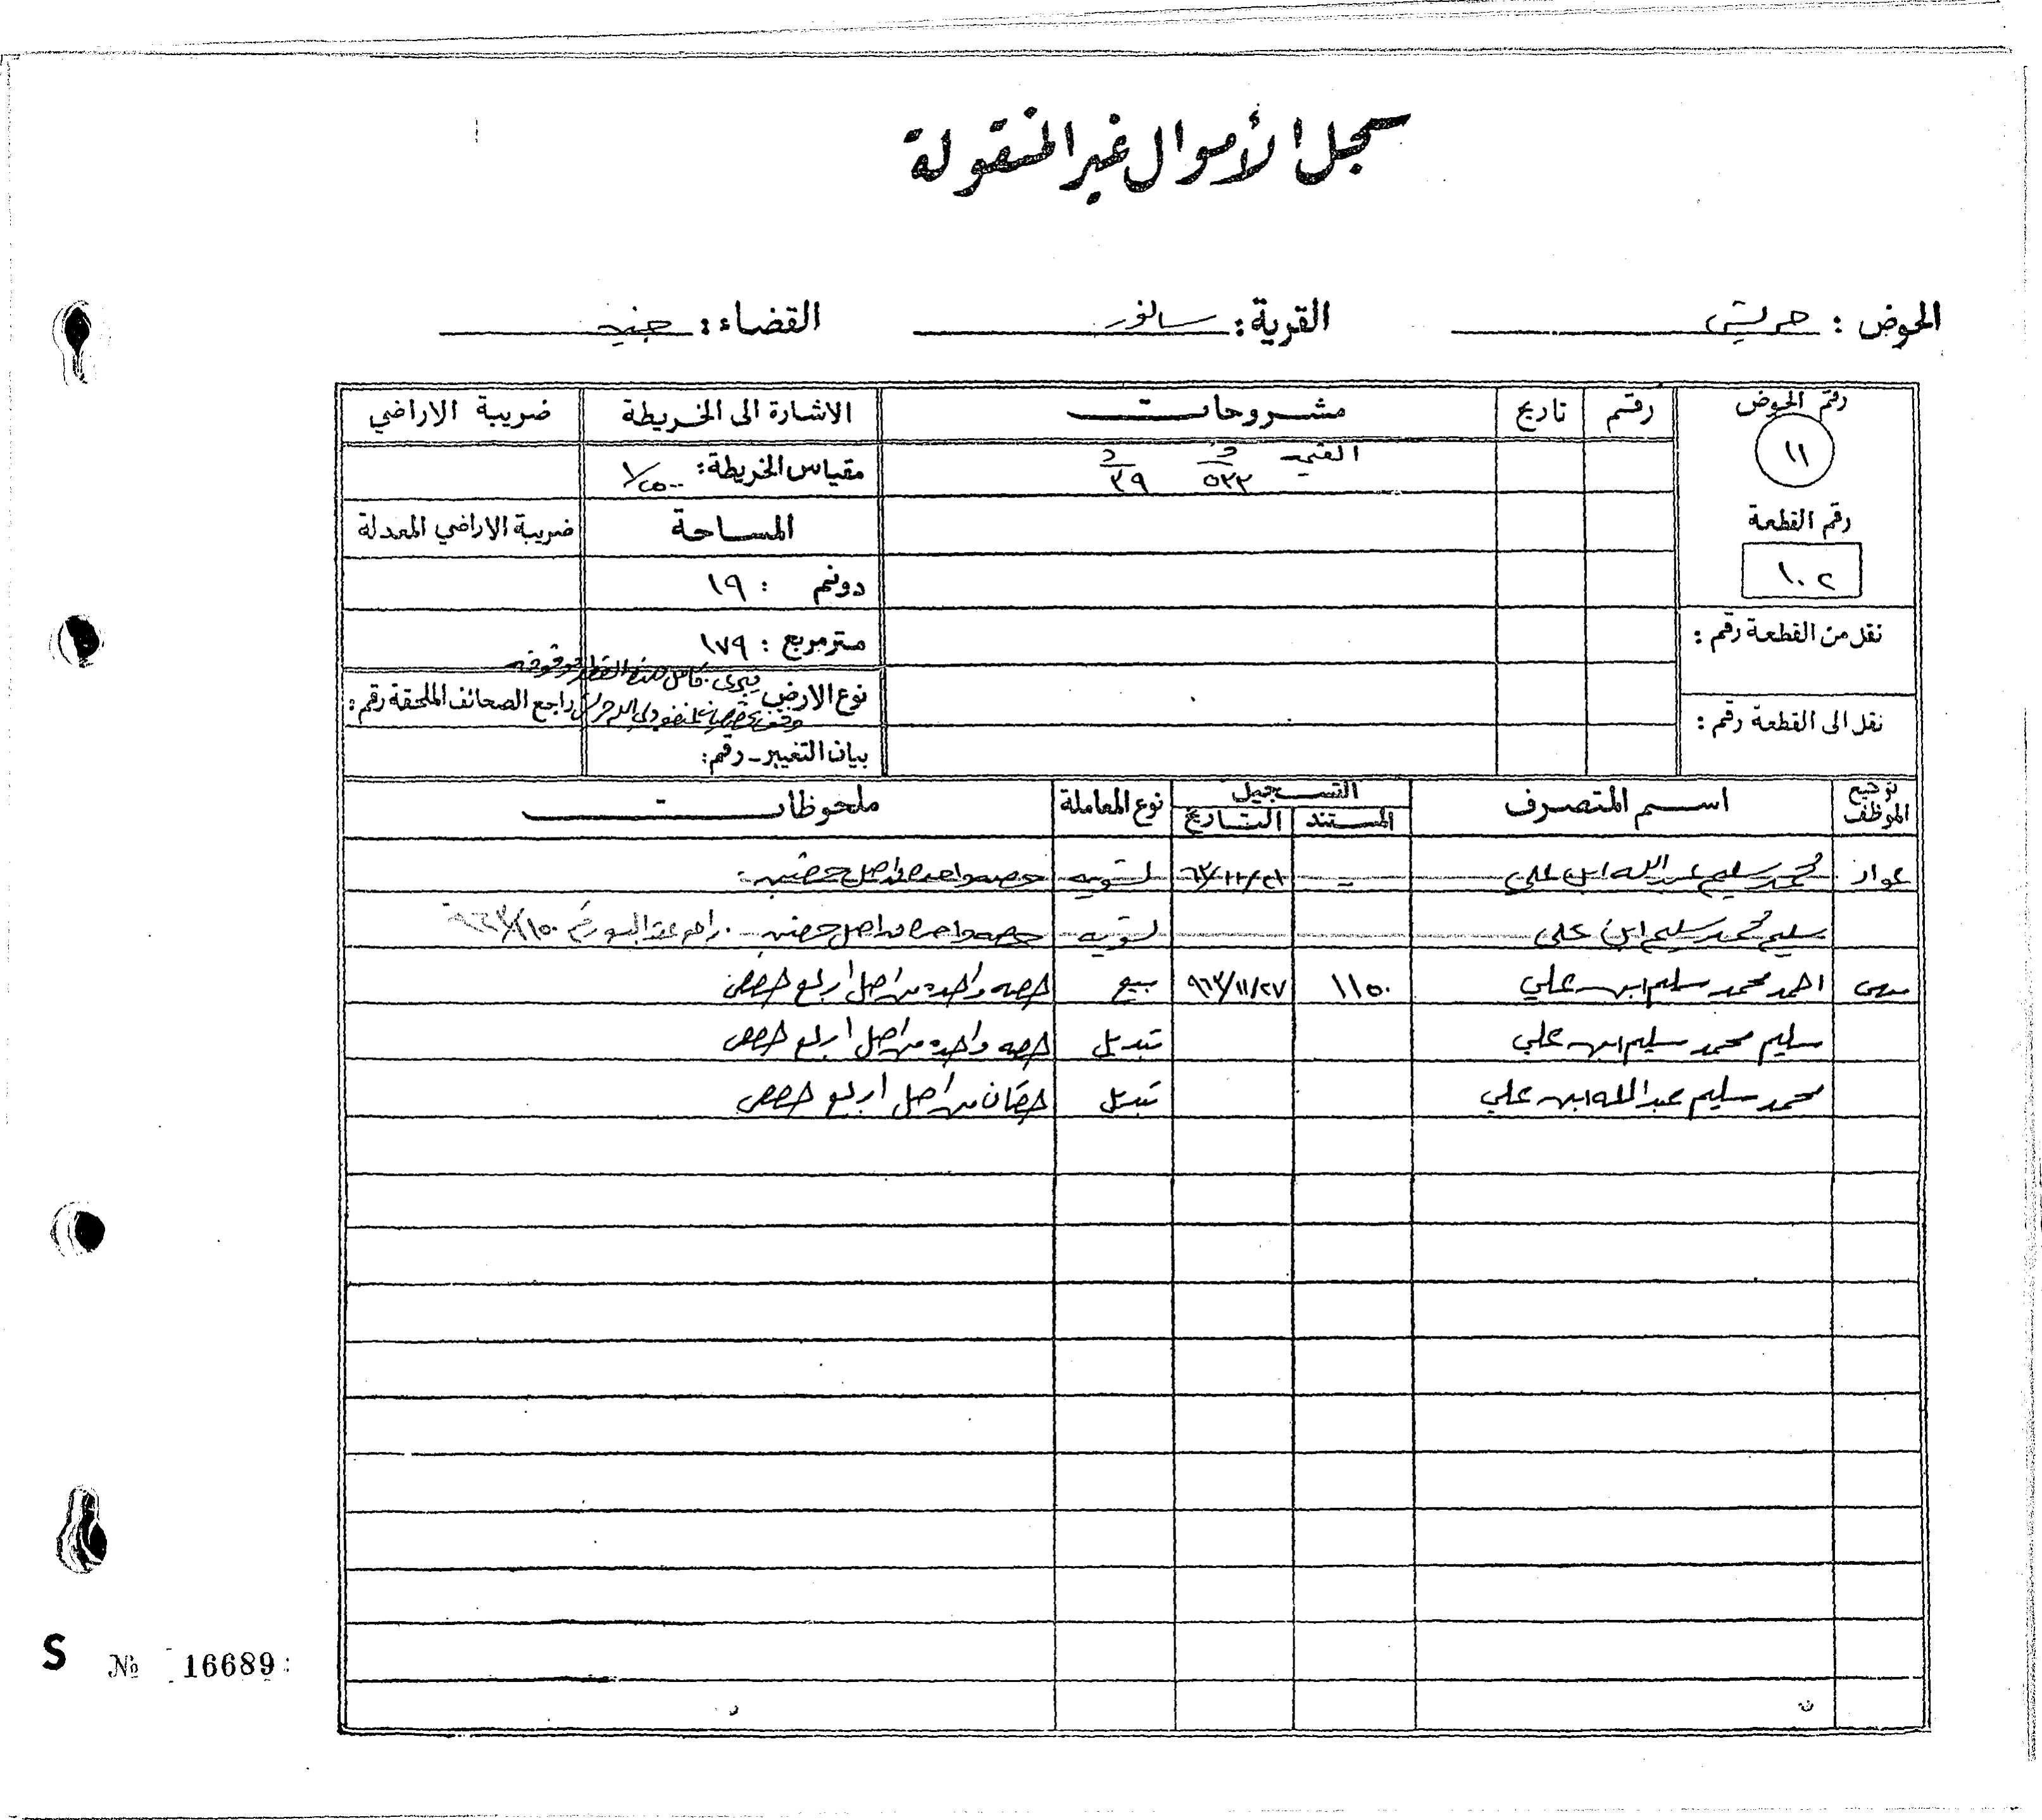 سجل الأموال غير المنقولة
الحوض : حريش القرية : سانور القضاء : جنين
رقم الحوض رقم تاريخ مشروحات الاشارة الى الخريطة ضريبة الاراضي
١١ ٥٢٢ ٣٩ مقياس الخريطة :
رقم القطعة المساحة ضريبة الاراضي المعدلة
١٠٢ دونم : ١٩
نقل من القطعة رقم : متر مربع : ١٧٩
نوع الارض راجع الصحائف الملحقة رقم :
نقل الى القطعة رقم : بيان التغيير - رقم :
توقيع الموظف اسم المتصرف التسجيل نوع المعاملة ملحوظات
المستند التاريخ
عواد محمد سليم عبدالله ابن علي = تسويه حصه واحده من اصل حصتين
سليم محمد سليم ابن علي تسويه حصه واحده من اصل حصتين
احمد محمد سليم ابن علي ١١٥٠ ٩٦٣/١١/٢٧ بيع حصه واحده من اصل اربع حصص
سليم محمد سليم ابن علي تبديل حصه واحده من اصل اربع حصص
محمد سليم عبدالله ابن علي تبديل حصتان من اصل اربع حصص
S № 16689